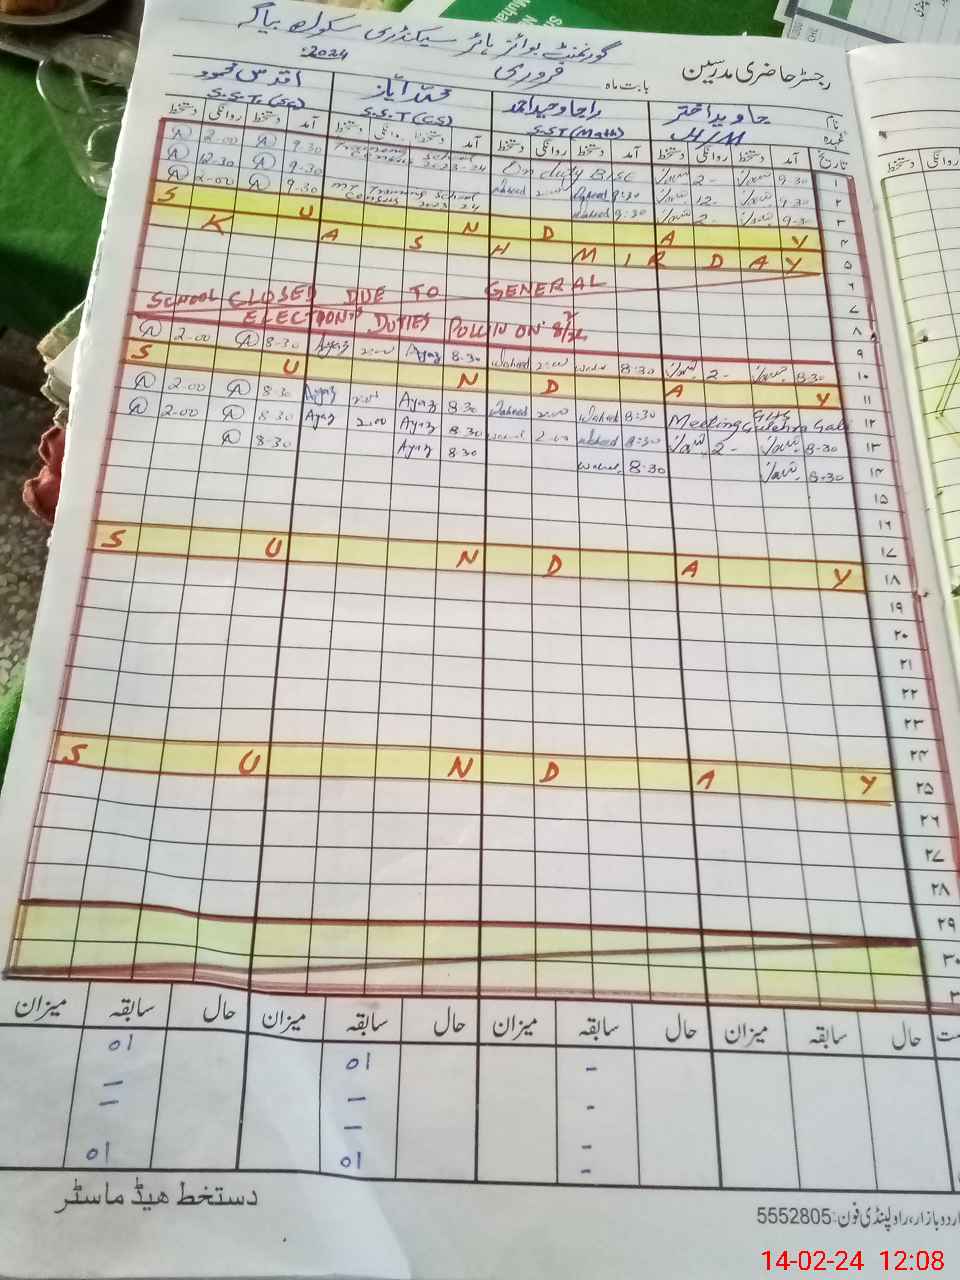 گورنمنٹ بوائز ہائر سیکنڈری سکول بیاگہ
رجسٹر حاضری مدرسین بابت ماہ فروری 2024
نام جاوید اختر راجہ وحید احمد محمد ایاز اقدس محمود
عہدہ H/M S.S.T (Math) S.S.T (CS) S.S.T. (SC)
تاریخ آمد دستخط روانگی دستخط آمد دستخط روانگی دستخط آمد دستخط روانگی دستخط آمد دستخط روانگی دستخط
۱ 9-30 2- On duty BISE Training School Census 2023-24 9.30 2-00
۲ 9-30 12- Waheed 9:30 Waheed 2:00 9-30 12-30
۳ 9-30 2- Waheed 9:30 MT Training School Census 2023-24 9-30 2-00
۴ SUNDAY
۵ KASHMIR DAY
۶
۷ SCHOOL CLOSED DUE TO GENERAL
۸ ELECTION DUTIES POLLING ON 8/2
۹
۱۰ 8-30 2- 8:30 Waheed 2:00 8-30 Ayaz 2:00 Ayaz 8-30 2-00
۱۱ SUNDAY
۱۲ Meeting GHS Gulehra Gali Waheed 8:30 Waheed 2:00 Ayaz 8 30 Ayaz 2:00 8-30 2-00
۱۳ 8-30 2- Waheed 8:30 2-00 Ayaz 8 30 Ayaz 2:00 8 30 2-00
۱۴ 8-30 8-30 Ayaz 8 30 8-30
۱۵
۱۶
۱۷
۱۸ SUNDAY
۱۹
۲۰
۲۱
۲۲
۲۳
۲۴
۲۵ SUNDAY
۲۶
۲۷
۲۸
۲۹
۳۰
حال سابقہ میزان حال سابقہ میزان حال سابقہ میزان حال سابقہ میزان
- ۱ه ۱ه
- - -
- - -
- ۱ه ۱ه
دستخط ہیڈ ماسٹر
اردو بازار، راولپنڈی فون: 5552805
14-02-24 12:08